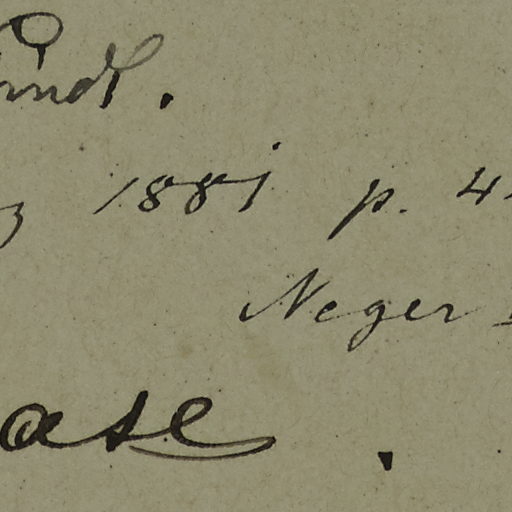 1881 p. 4
Neger
ase .